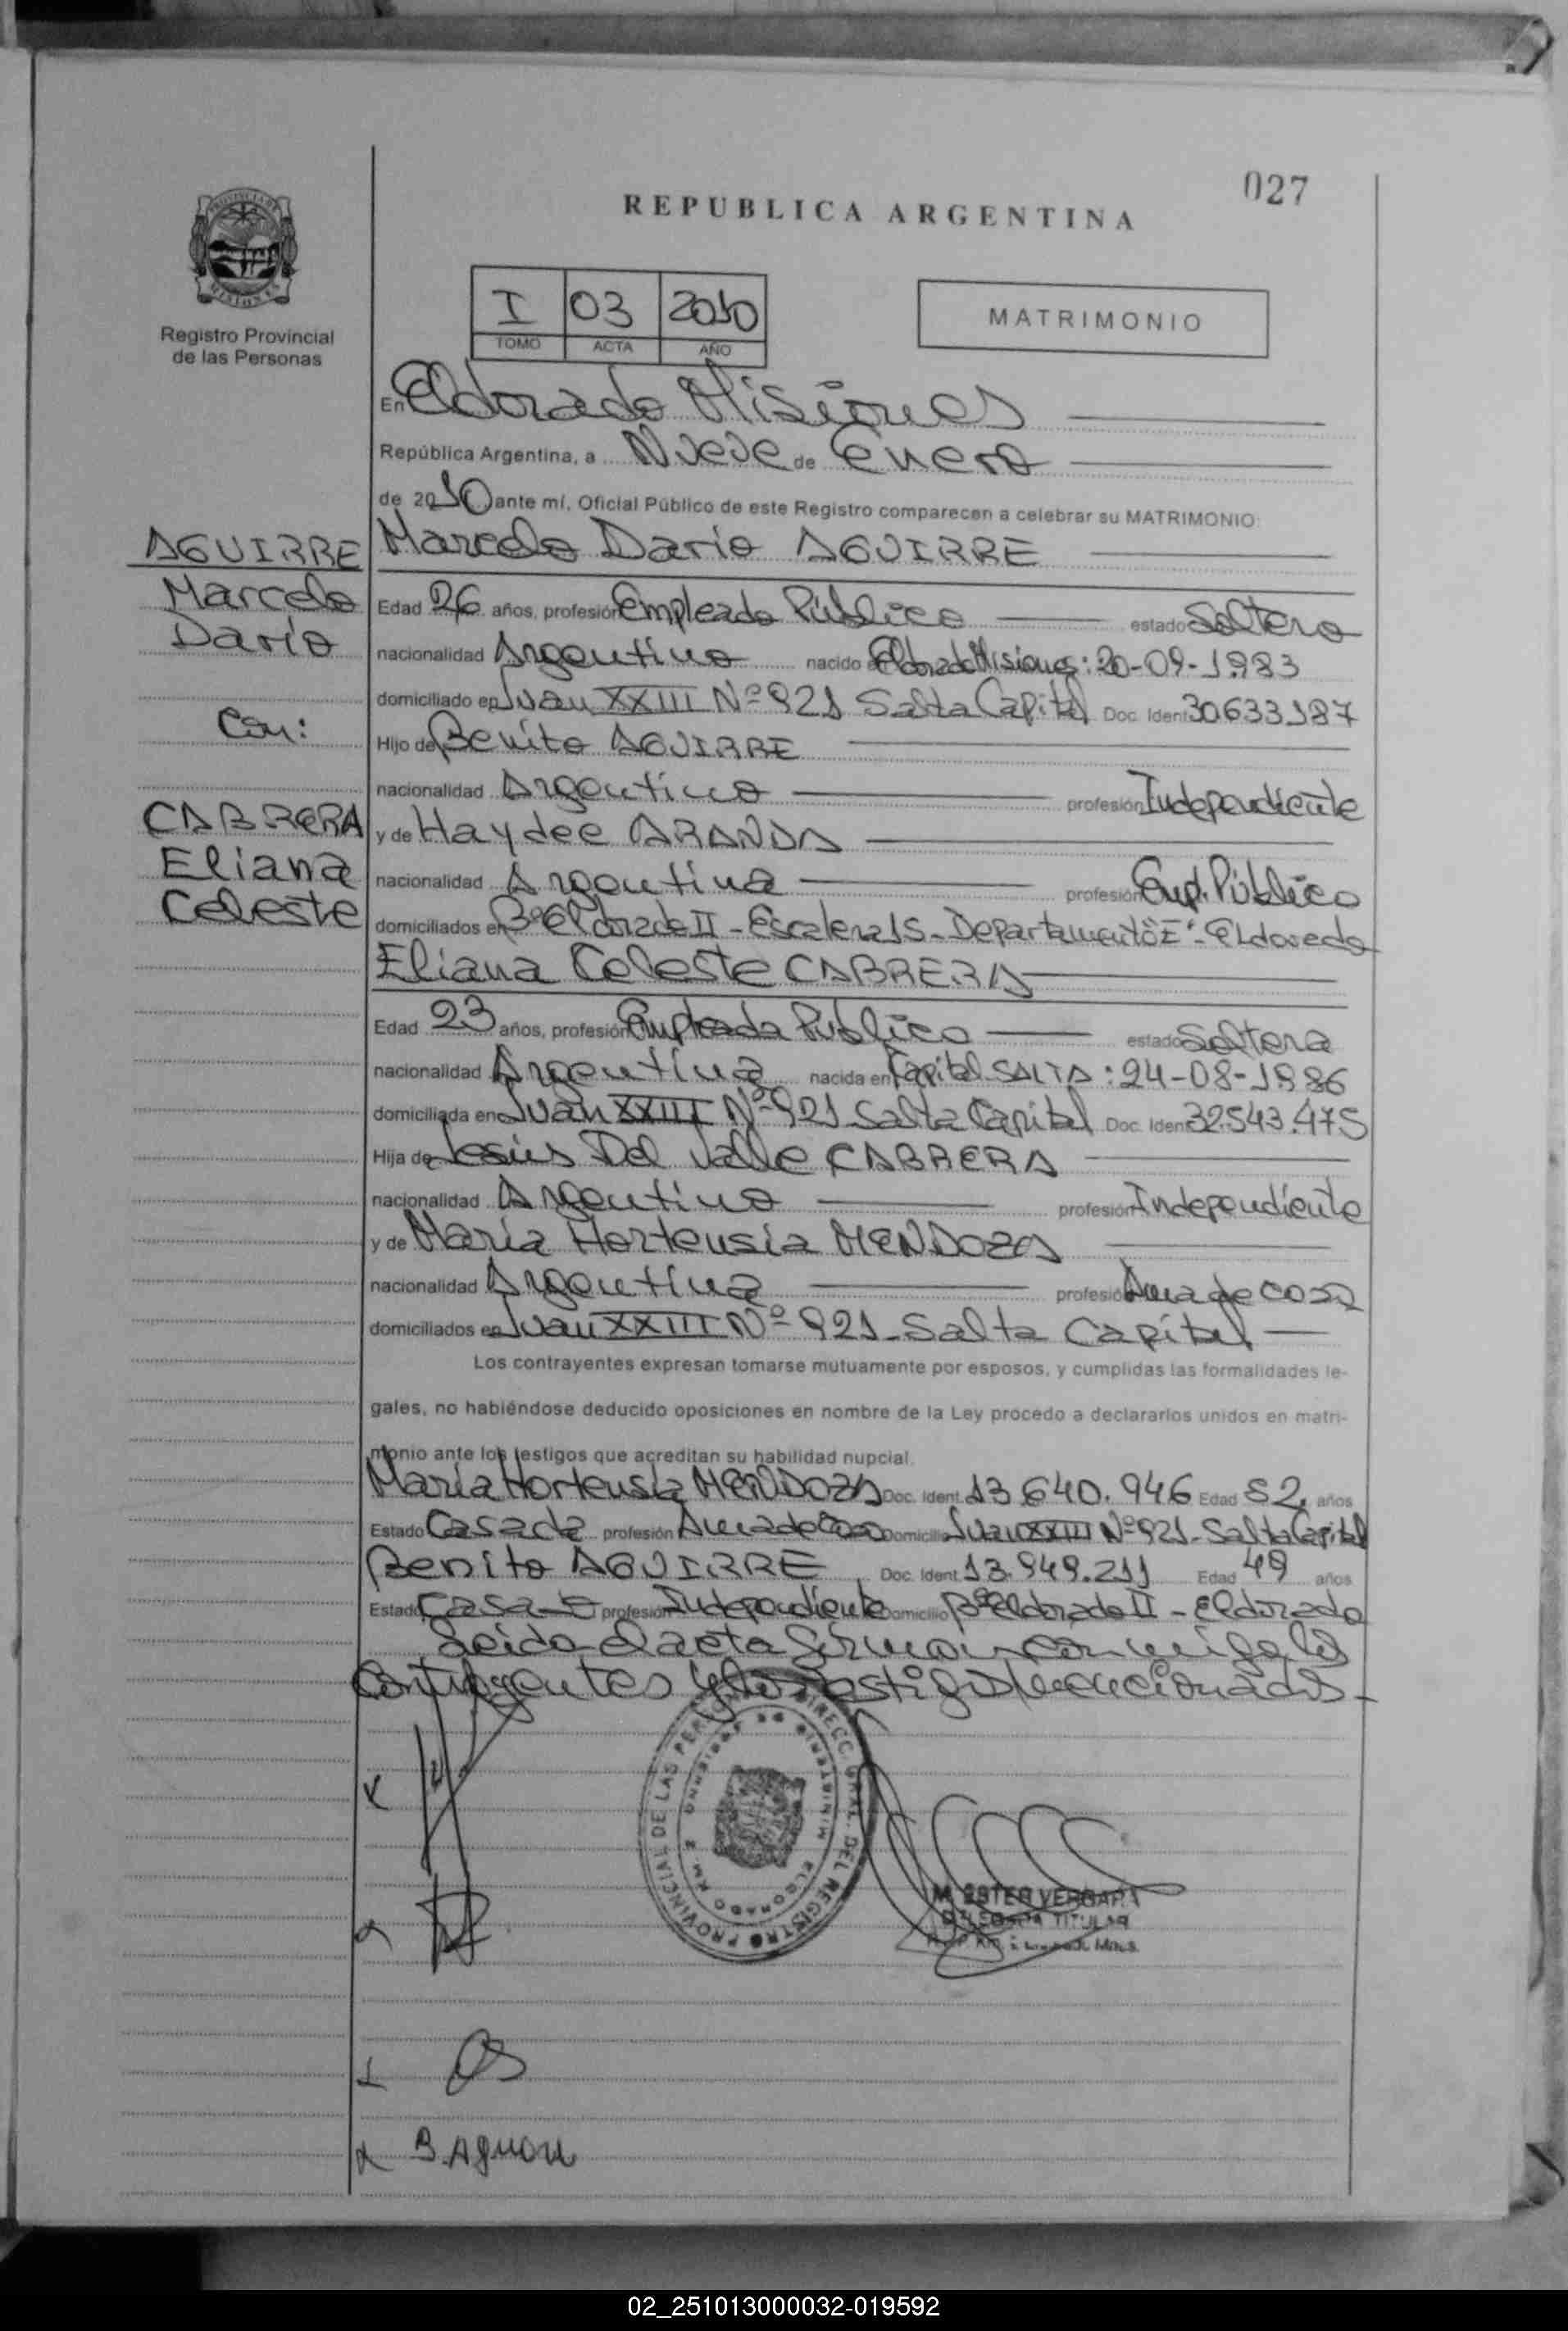 027
REPUBLICA ARGENTINA
PROVINCIA DE MISIONES
Registro Provincial
de las Personas
I 03 2010
TOMO ACTA AÑO
MATRIMONIO
En Eldorado Misiones
República Argentina, a Nueve de Enero
de 2010 ante mí, Oficial Público de este Registro comparecen a celebrar su MATRIMONIO:
AGUIRRE
Marcelo
Dario
Con:
CABRERA
Eliana
Celeste
Marcelo Dario AGUIRRE
Edad 26 años, profesión Empleado Público estado Soltero
nacionalidad Argentino nacido en Eldorado Misiones: 20-09-1983
domiciliado en Juan XXIII Nº 921 Salta Capital Doc. Ident. 30.633.187
Hijo de Benito AGUIRRE
nacionalidad Argentino profesión Independiente
y de Haydee ARANDA
nacionalidad Argentina profesión Emp. Público
domiciliados en Bº Eldorado II - Escalera 15 - Departamento "E" - Eldorado
Eliana Celeste CABRERA
Edad 23 años, profesión Empleada Público estado Soltera
nacionalidad Argentina nacida en Capital SALTA: 24-08-1986
domiciliada en Juan XXIII Nº 921 Salta Capital Doc. Ident. 32.543.475
Hija de Jesús Del Valle CABRERA
nacionalidad Argentino profesión Independiente
y de María Hortensia MENDOZA
nacionalidad Argentina profesión Ama de casa
domiciliados en Juan XXIII Nº 921 - Salta Capital
Los contrayentes expresan tomarse mutuamente por esposos, y cumplidas las formalidades le-
gales, no habiéndose deducido oposiciones en nombre de la Ley procedo a declararlos unidos en matri-
monio ante los testigos que acreditan su habilidad nupcial.
María Hortensia MENDOZA Doc. Ident. 13.640.946 Edad 52 años
Estado Casada profesión Ama de Casa Domicilio Juan XXIII Nº 921 - Salta Capital
Benito AGUIRRE Doc. Ident. 13.949.211 Edad 49 años
Estado Casado profesión Independiente Domicilio Bº Eldorado II - Eldorado
Leida el acta firman conmigo los
contrayentes y los testigos mencionados -
DIRECC. GRAL. DEL REGISTRO PROVINCIAL DE LAS PERS
MINISTERIO DE GOBIERNO
ELDORADO KM. 2
M. ESTER VERGARA
DELEGADA TITULAR
B. Aguirre
02_251013000032-019592